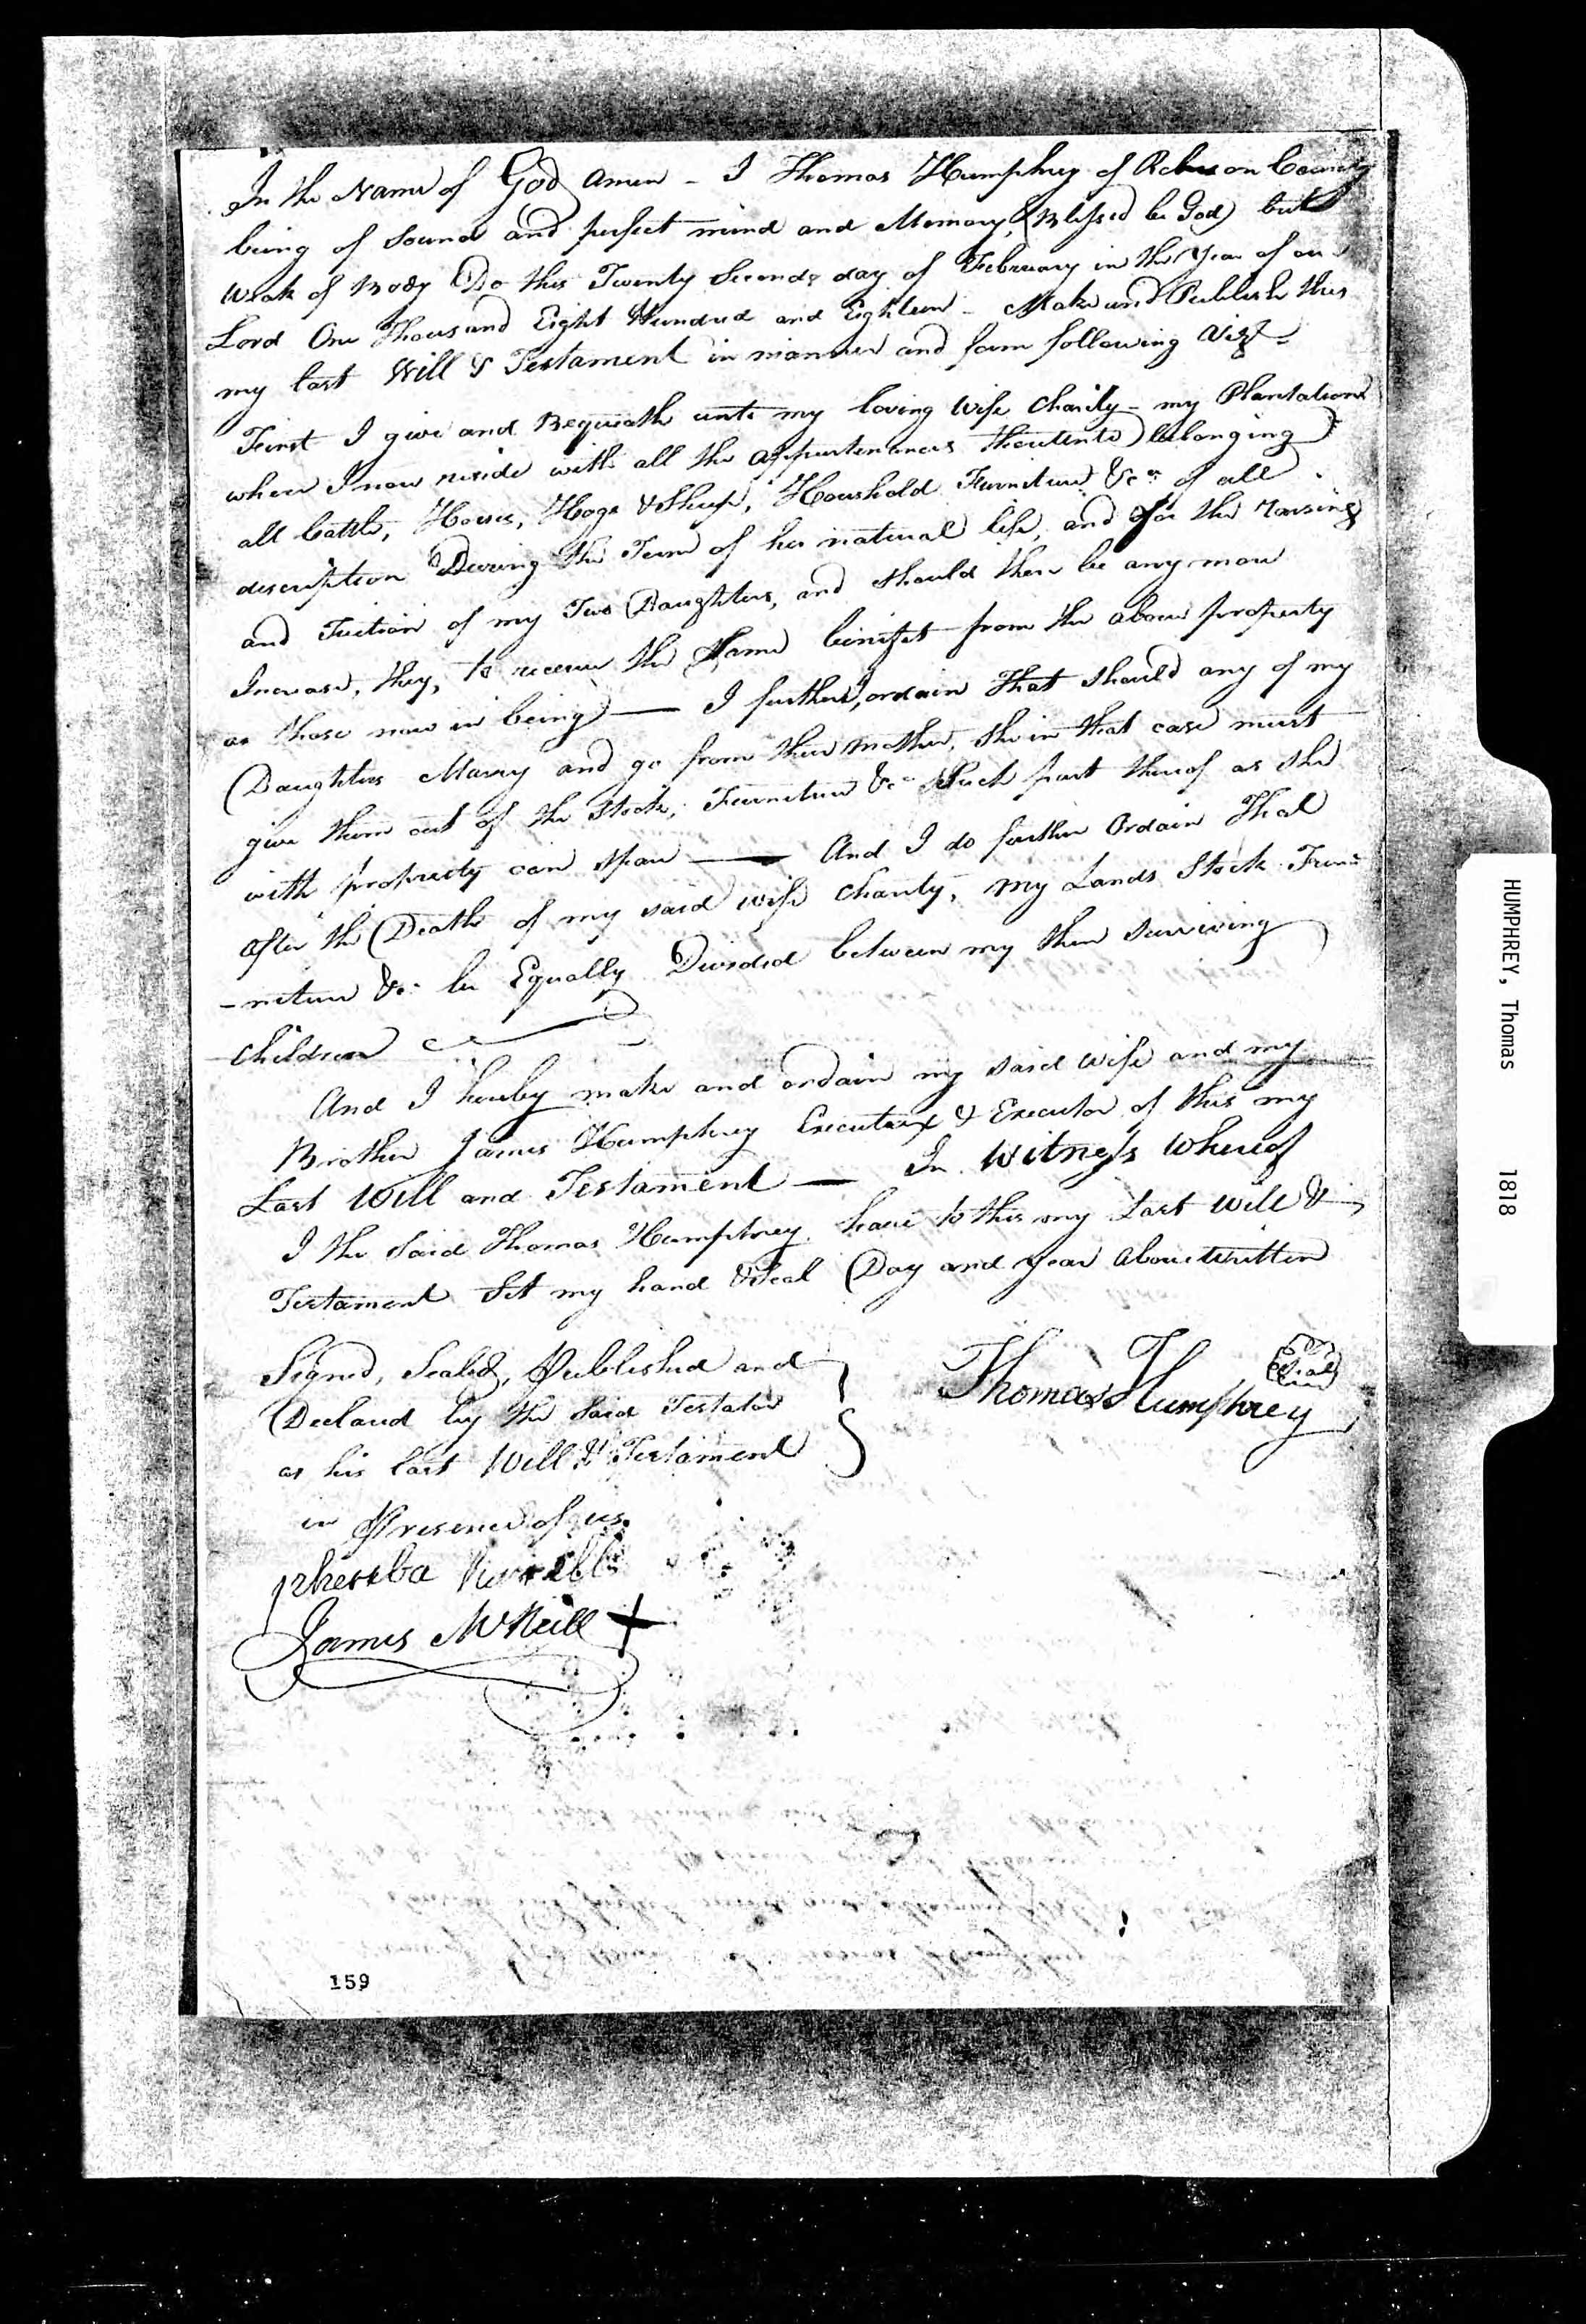 In the Name of God Amen - I Thomas Humphrey of Robeson County
being of Sound and perfect mind and Memory, (Blessed be God) but
Weak of Body Do this Twenty Second day of February in the Year of our
Lord One Thousand Eight Hundred and Eighteen - Make and Publish this
my last Will & Testament in manner and form following Vizt
First I give and Bequeath unto my loving Wife Charity - my Plantation
where I now reside with all the appurtenances thereunto belonging
all Cattle, Horses, Hogs & Sheep, Houshold Furniture &c of all
description During the Term of her natural life, and for the raising
and Tuition of my Two Daughters, and should there be any more
Increase, they, to receive the Same benifet from the above property
as those now in being — I further, ordain That should any of my
Daughters Marry and go from their Mother, she in that case must
give them out of the Stock, Furniture &c Such part thereof as she
with propriety can spare — And I do further Ordain That
after the Death of my said wife Charity, my Lands Stock Fur=
-niture &c be Equally Divided between my then surviving
Children
And I hereby make and ordain my said Wife and my
Brother James Humphrey Executrix & Executor of this my
Last Will and Testament — In Witness Whereof
I the said Thomas Humphrey have to this my Last Will &
Testament Set my hand & Seal Day and year above Written
Signed, Sealed, Published and
Declared by the Said Testator
as his last Will & Testament
in Presence of us
Thomas Humphrey Seal
James McNeill +
159
HUMPHREY, Thomas 1818